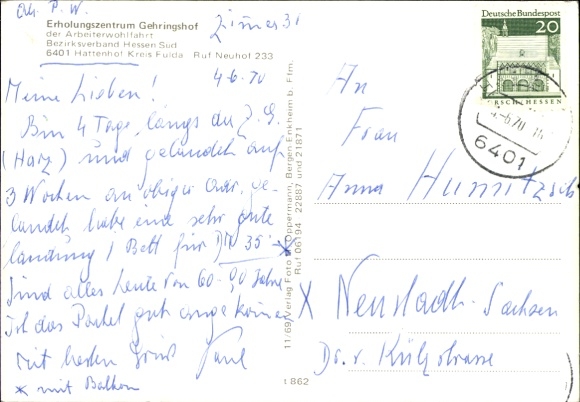 Abs. P. W.
Zimmer 31
Erholungszentrum Gehringshof
der Arbeiterwohlfahrt
Bezirksverband Hessen Süd
6401 Hattenhof Kreis Fulda Ruf Neuhof 233
4.6.70
Meine Lieben!
Bin 4 Tage längs der Z. G.
(Harz) und gelandet auf
3 Wochen an obiger
landet habe eine sehr gute
landung 1 Bett für DM 35
sind alles Leute von 60-90 Jahre
ist das Packel gut angekommen
mit herzl. Gruß Paul
* mit Balkon
11/69 Verlag Foto Oppermann, Bergen-Enkheim b. Ffm.
Ruf 06194 22887 und 21871
1862
Deutsche Bundespost
20
LORSCH/HESSEN
6.70
6401
An
Frau
Anna Humitzsch
X Neustadt-Sachsen
Dr. v. Külzstrasse